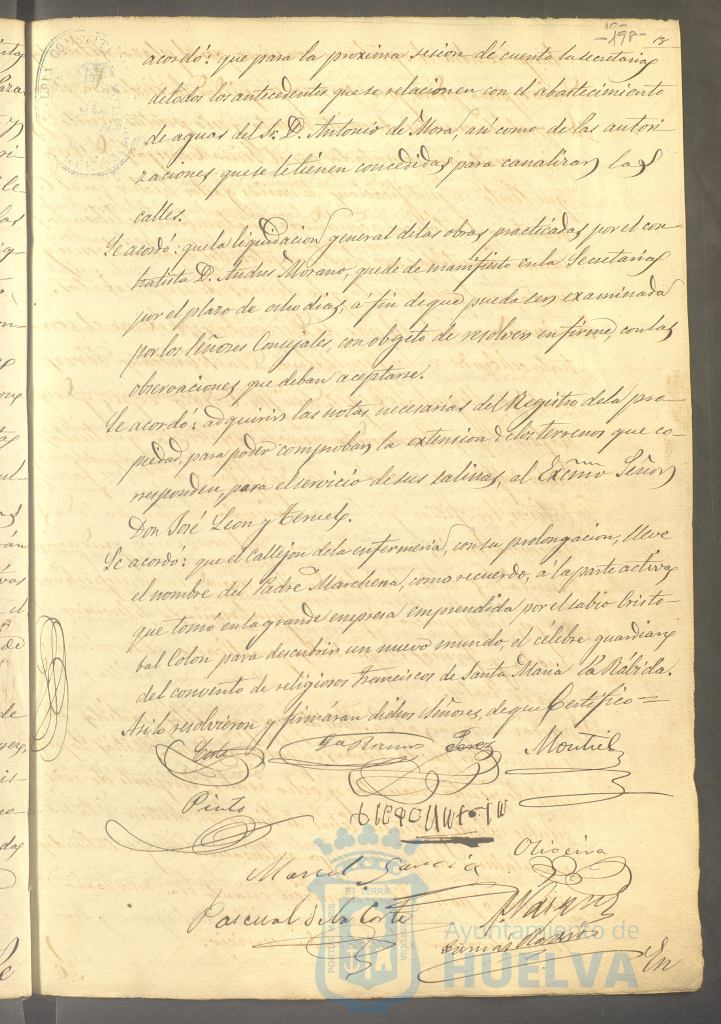 -198-
acordó: que para la proxima sesion dé cuenta la secretaria
de todos los antecedentes que se relacionen con el abastecimiento
de aguas del Sr. D. Antonio de Mora, asi como de las autori
zaciones que se le tienen concedidas para canalizar las
calles.
Se acordó: que la liquidacion general de las obras practicadas por el con
tratista D. Andres Morano, quede de manifiesto en la Secretaria
por el plazo de ocho dias, á fin de que pueda ser examinada
por los Señores Consejales, con objeto de resolver en firme, con las
observaciones que deban aceptarse.
Se acordó: adquirir las notas necesarias del Registro de la pro-
piedad, para poder comprobar la extension de los terrenos que co-
rresponden, para el servicio de sus salinas, al Excmo Señor
Don José Leon y Teruel.
Se acordó: que el Callejon de la enfermeria, con su prolongacion, lleve
el nombre del Padre Marchena, como recuerdo, á la parte activa
que tomó en la grande empresa emprendida por el sabio Cristo
bal Colon para descubrir un nuevo mundo, el célebre guardian
del convento de religiosos Franciscos de Santa Maria la Rábida.
Asi lo resolvieron y firmaran dichos Señores, de que Certifico=
Perez Montiel
Pinto
Garcia Oliveira
Pascual de la Corte
En
Ayuntamiento de
HUELVA